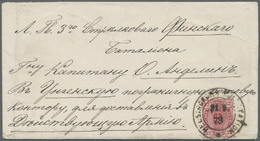 Л. Гв. 3го Стрѣлковаго Финскаго
Баталіона
Капитану О. Анделинъ.
Въ Унгенскую пограничную
контору, для доставленія въ
Дѣйствующую Армію.